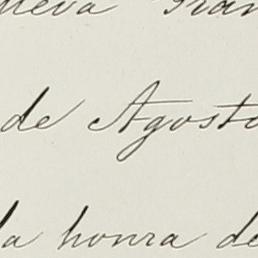 ueva Gran
de Agosto
la honra de